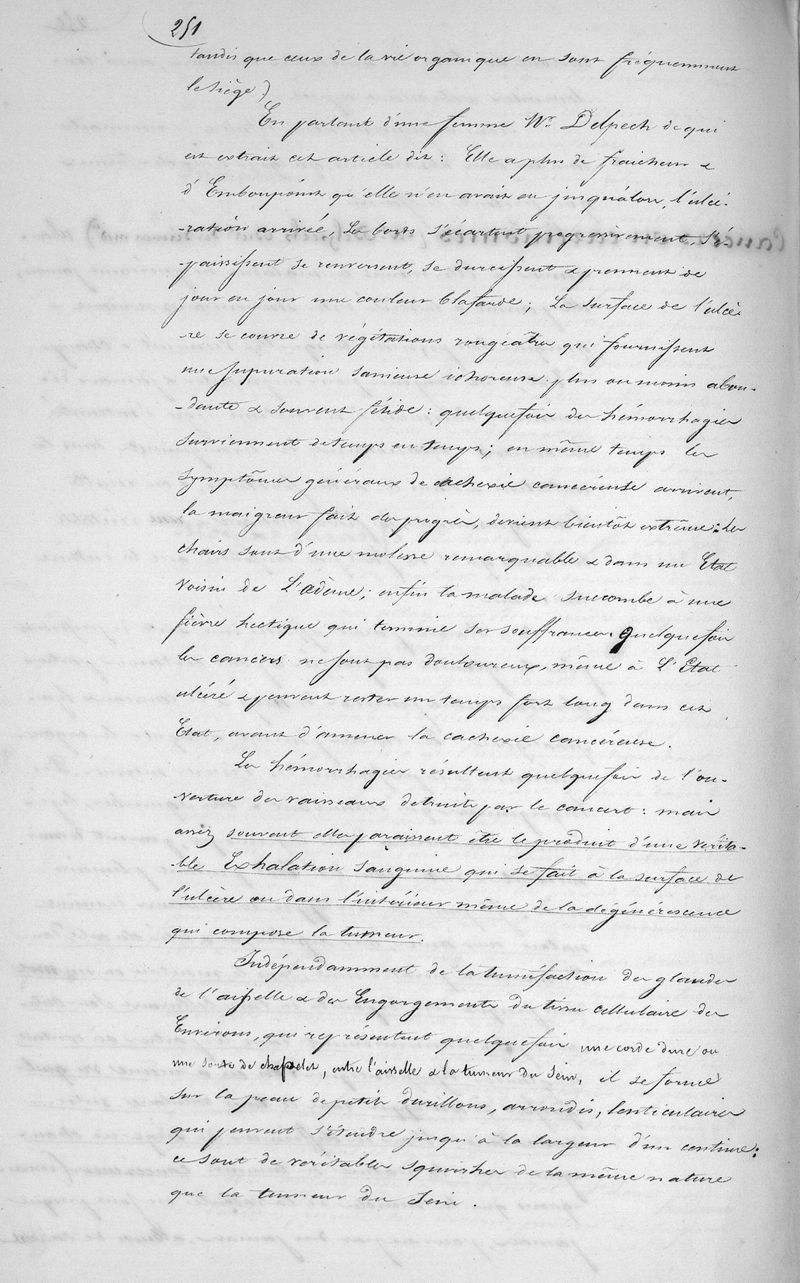 251
tandis que ceux de la vie organique en sont fréquemment
le siège)
En parlant d'une femme Mr. Delpech de qui
est extrait cet article dit : Elle a plus de fraicheur &
d'Embonpoint qu'elle n'en avait eu jusqu'alors, l'ulcé-
-ration arrivée, Les bords s'écartent progressivement, s'é-
paississent se renversent, se durcissent & prennent de
jour en jour une couleur blafarde ; La surface de l'ulcè-
re se couvre de végétations rougeâtres qui fournissent
une supuration sanieuse ichoreuse plus ou moins abon-
-dante & souvent fétide : quelquefois des hémorrhagies
surviennent de temps en temps ; en même temps les
symptômes généraux de cachexie cancéreuse arrivent,
la maigreur fait des progrès, devient bientôt extrême : les
chairs sont d'une molesse remarquable & dans un Etat
voisin de L'œdème ; enfin la malade succombe à une
fièvre hectique qui termine ses souffrances. Quelquefois
les cancers ne sont pas douloureux, même à L'Etat
ulcéré & peuvent rester un temps fort long dans cet
Etat, avant d'amener la cachexie cancéreuse.
Les hémorrhagies résultent quelquefois de l'ou-
verture des vaisseaux détruits par le cancer : mais
assez souvent elles paraissent être le produit d'une vérita-
-ble Exhalation sanguine qui se fait à la surface de
l'ulcère ou dans l'intérieur même de la dégénérescence
qui compose la tumeur.
Indépendamment de la tuméfaction des glandes
de l'aisselle & des Engorgements du tissu cellulaire des
Environs, qui représentent quelquefois une corde dure ou
une sorte de chapelet, entre l'aisselle & la tumeur du Sein, il se forme
sur la peau de petits durillons, arrondis, lenticulaires
qui peuvent s'étendre jusqu'à la largeur d'un centime :
ce sont de véritables squirrhes de la même nature
que la tumeur du Sein.